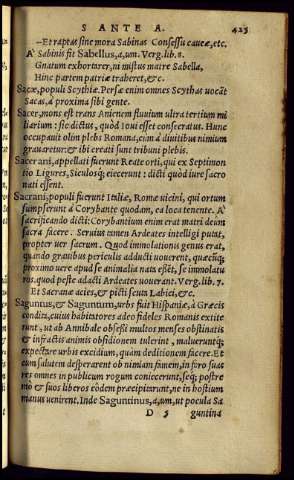 S ANTE A.
425
—Et raptas sine more Sabinas Consessu caueæ, etc.
A Sabinis fit Sabellus, a, um. Verg. lib. 8.
Gnatum exhortarer, ni mistus matre Sabella,
Hinc partem patriæ traheret, &c.
Sacæ, populi Scythiæ. Persæ enim omnes Scythas uocāt
Sacas, à proxima sibi gente.
Sacer, mons est trans Anienem fluuium ultra tertium mi
liarium: sic dictus, quòd Ioui esset consecratus. Hunc
occupauit olim plebs Romana, cùm à diuitibus nimium
grauaretur: & ibi creati sunt tribuni plebis.
Sacerani, appellati fuerunt Reate orti, qui ex Septimon
tio Ligures, Siculosq; eiecerunt: dicti quòd iure sacro
nati essent.
Sacrani, populi fuerunt Italiæ, Romæ uicini, qui ortum
sumpserunt à Corybante quodam, ea loca tenente. A
sacrificando dicti: Corybantium enim erat matri deum
sacra facere. Seruius tamen Ardeates intelligi putat,
propter uer sacrum. Quod immolationis genus erat,
quando grauibus periculis adducti uouerent, quæcūq;
proximo uere apud se animalia nata essēt, se immolatu
ros. quod peste adacti Ardeates uouerant. Verg. lib. 7.
Et Sacranæ acies, & picti scuta Labici, &c.
Saguntus, & Saguntum, urbs fuit Hispaniæ, à Græcis
condita, cuius habitatores adeo fideles Romanis extite
runt, ut ab Annibale obsessi multos menses obstinatis
& infractis animis obsidionem tulerint, malueruntq;
expectare urbis excidium, quàm deditionem facere. Et
cum salutem desperarent ob nimiam famem, in foro suas
res omnes in publicum rogum coniecerunt, seq; postre
mò & suos liberos eòdem præcipitarunt, ne in hostium
manus uenirent. Inde Saguntinus, a, um, ut pocula Sa
D 5
guntina